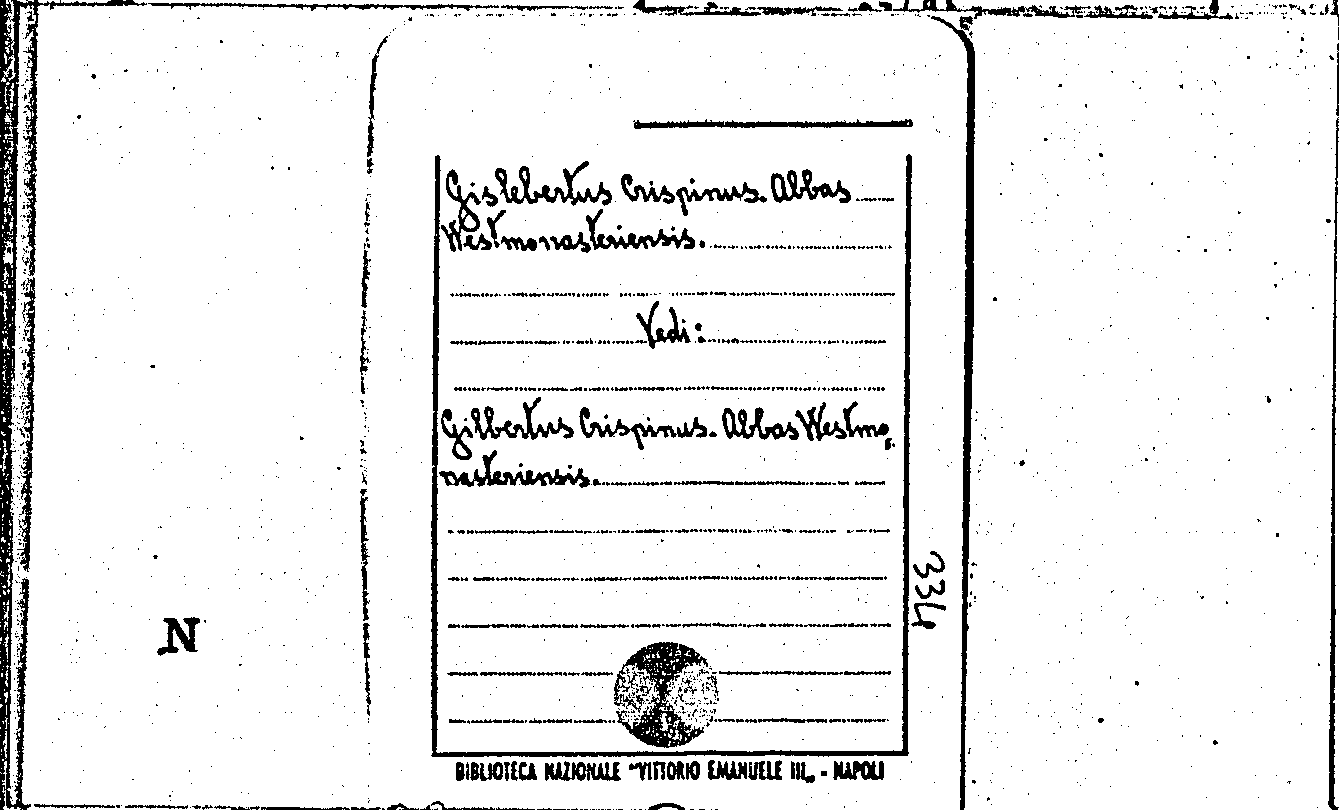 Gislebertus Crispinus. Abbas
Westmonasteriensis.
Vedi:
Gilbertus Crispinus. Abbas Westmo,
nasteriensis.
334
N
BIBLIOTECA NAZIONALE "VITTORIO EMANUELE III„ - NAPOLI